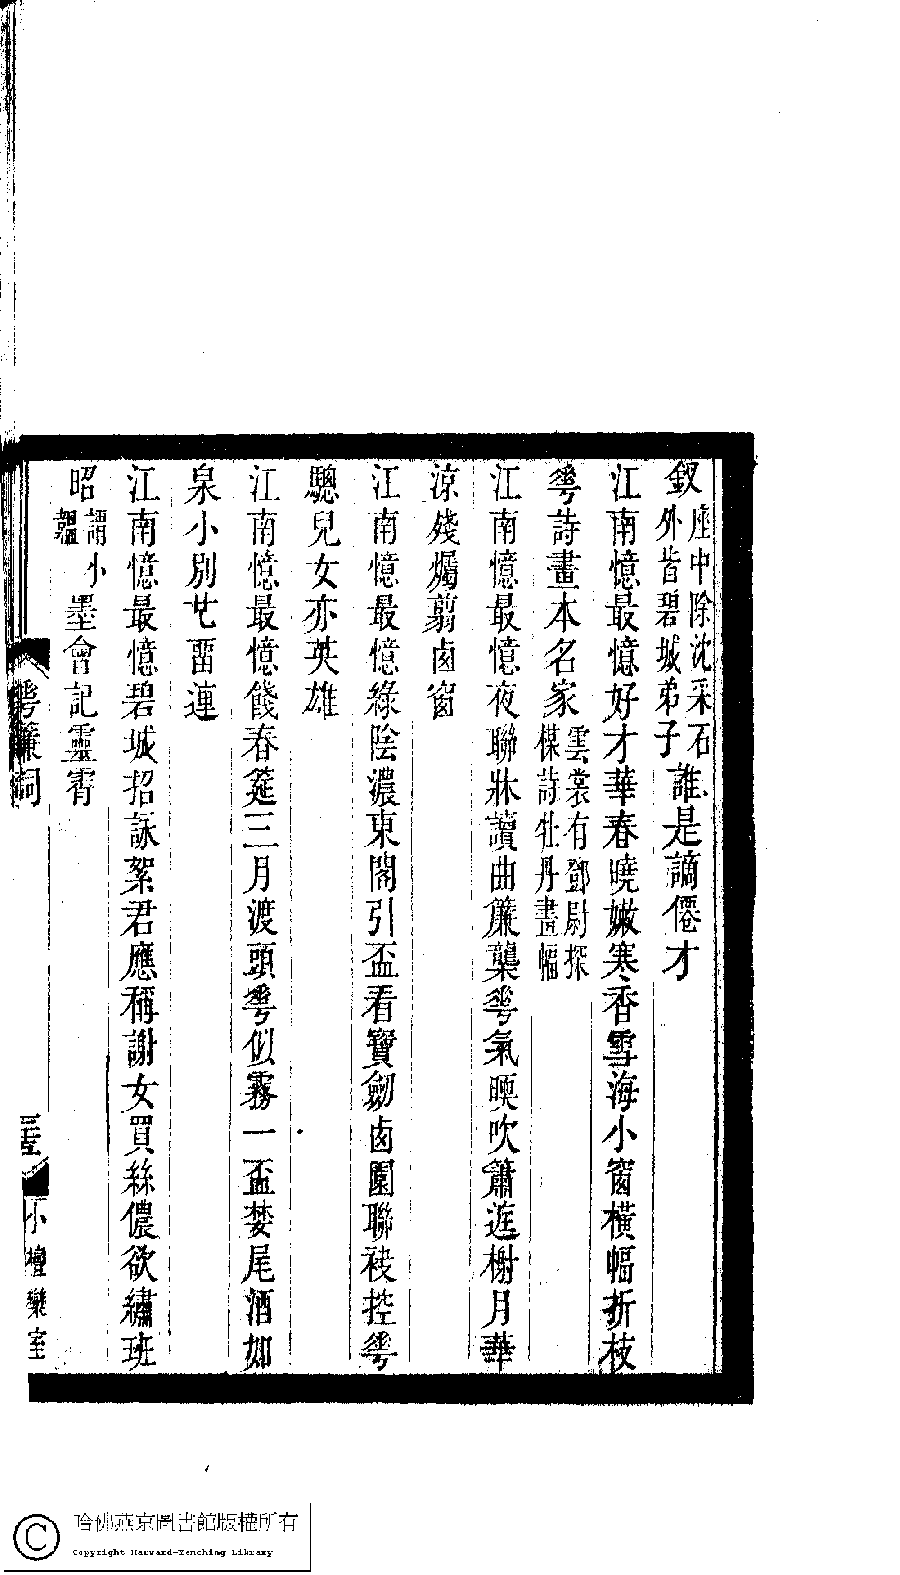 釵座中除沈采石外皆碧城弟子誰是謫僊才
江南憶最憶好才華春曉嫩寒香雪海小窗橫幅折枝
蕚詩畫本名家雲裳有鄧尉探楳詩牡丹畫幅
江南憶最憶夜聯牀讀曲簾櫳蕚氣暖吹簫榭月華
涼殘燭翦卤窗
江南憶最憶綠陰濃東閣引盃看寶劒卤園聯袂控蕚
驄兒女亦英雄
江南憶最憶餞春筵三月渡頭蕚似霧一盃婪尾酒如
泉小別也畱連
江南憶最憶碧城招詠絮君應稱謝女買絲儂欲繡班
昭謂小韞墨會記靈霄
蕚簾詞
小檀欒室
哈佛燕京圖書館版權所有
Copyright Harvard-Yenching Library